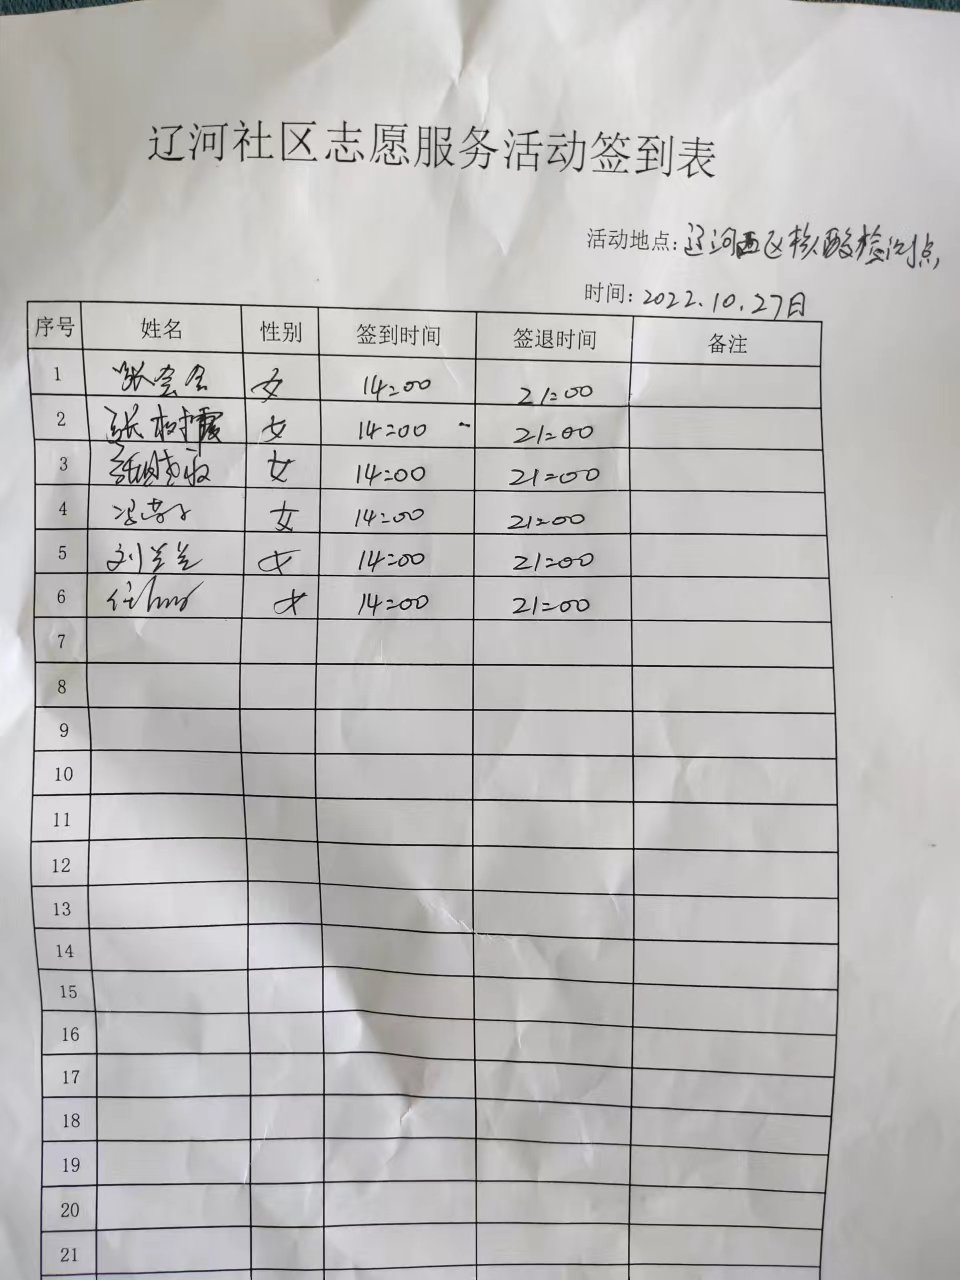 辽河社区志愿服务活动签到表
活动地点:辽河西区核酸检测点
时间:2022.10.27日
序号 姓名 性别 签到时间 签退时间 备注
1 张会会 女 14:00 21:00
2 张树霞 女 14:00 21:00
3 女 14:00 21:00
4 女 14:00 21:00
5 刘兰兰 女 14:00 21:00
6 女 14:00 21:00
7
8
9
10
11
12
13
14
15
16
17
18
19
20
21